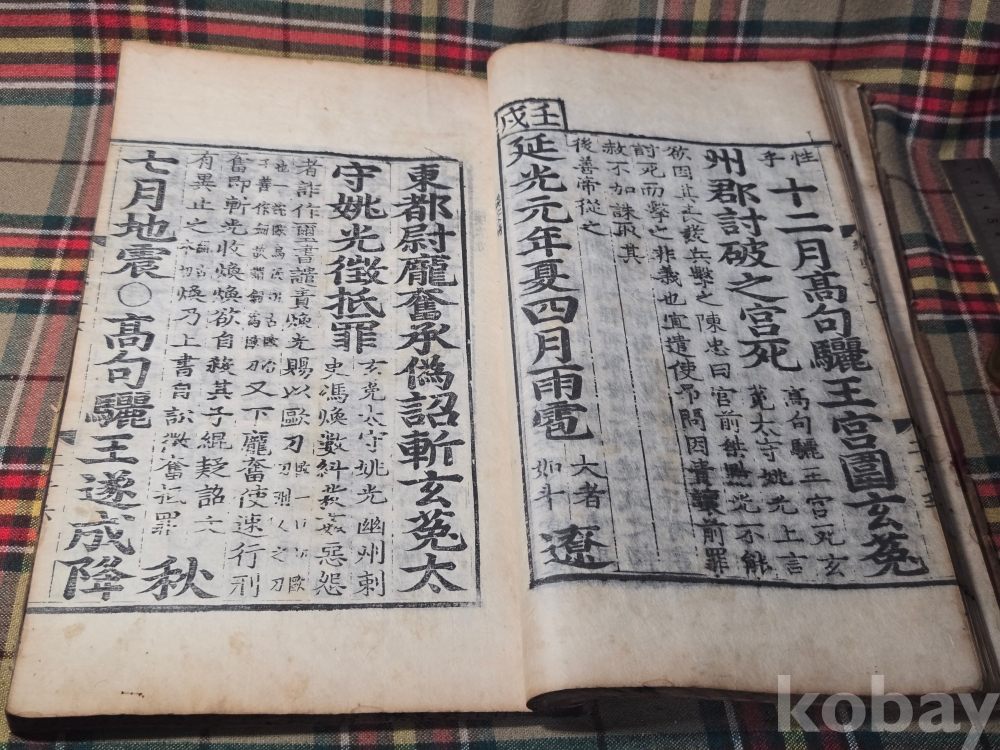 性
字
十二月高句驪王宮圍玄菟
州郡討破之宮死
高句驪王宮死玄
菟太守姚光上言
欲因其喪兵擊之陳忠曰宮前桀黠光不能
討死而擊之非義也宜遣使弔問因責讓前罪
赦不加誅取其
後善帝從之
壬戌
延光元年夏四月雨雹
大者
如斗
遼
東都尉龐奮承偽詔斬玄菟太
守姚光徵抵罪
玄菟太守姚光幽州刺
史馮煥數糾發姦惡怨
者詐作璽書譴責煥光賜以歐刀
又下龐奮使速行刑
奮即斬光收煥煥欲自殺其子緄疑詔文
有異止之煥乃上書自訟徵奮抵罪
秋
七月地震○高句驪王遂成降
kobay